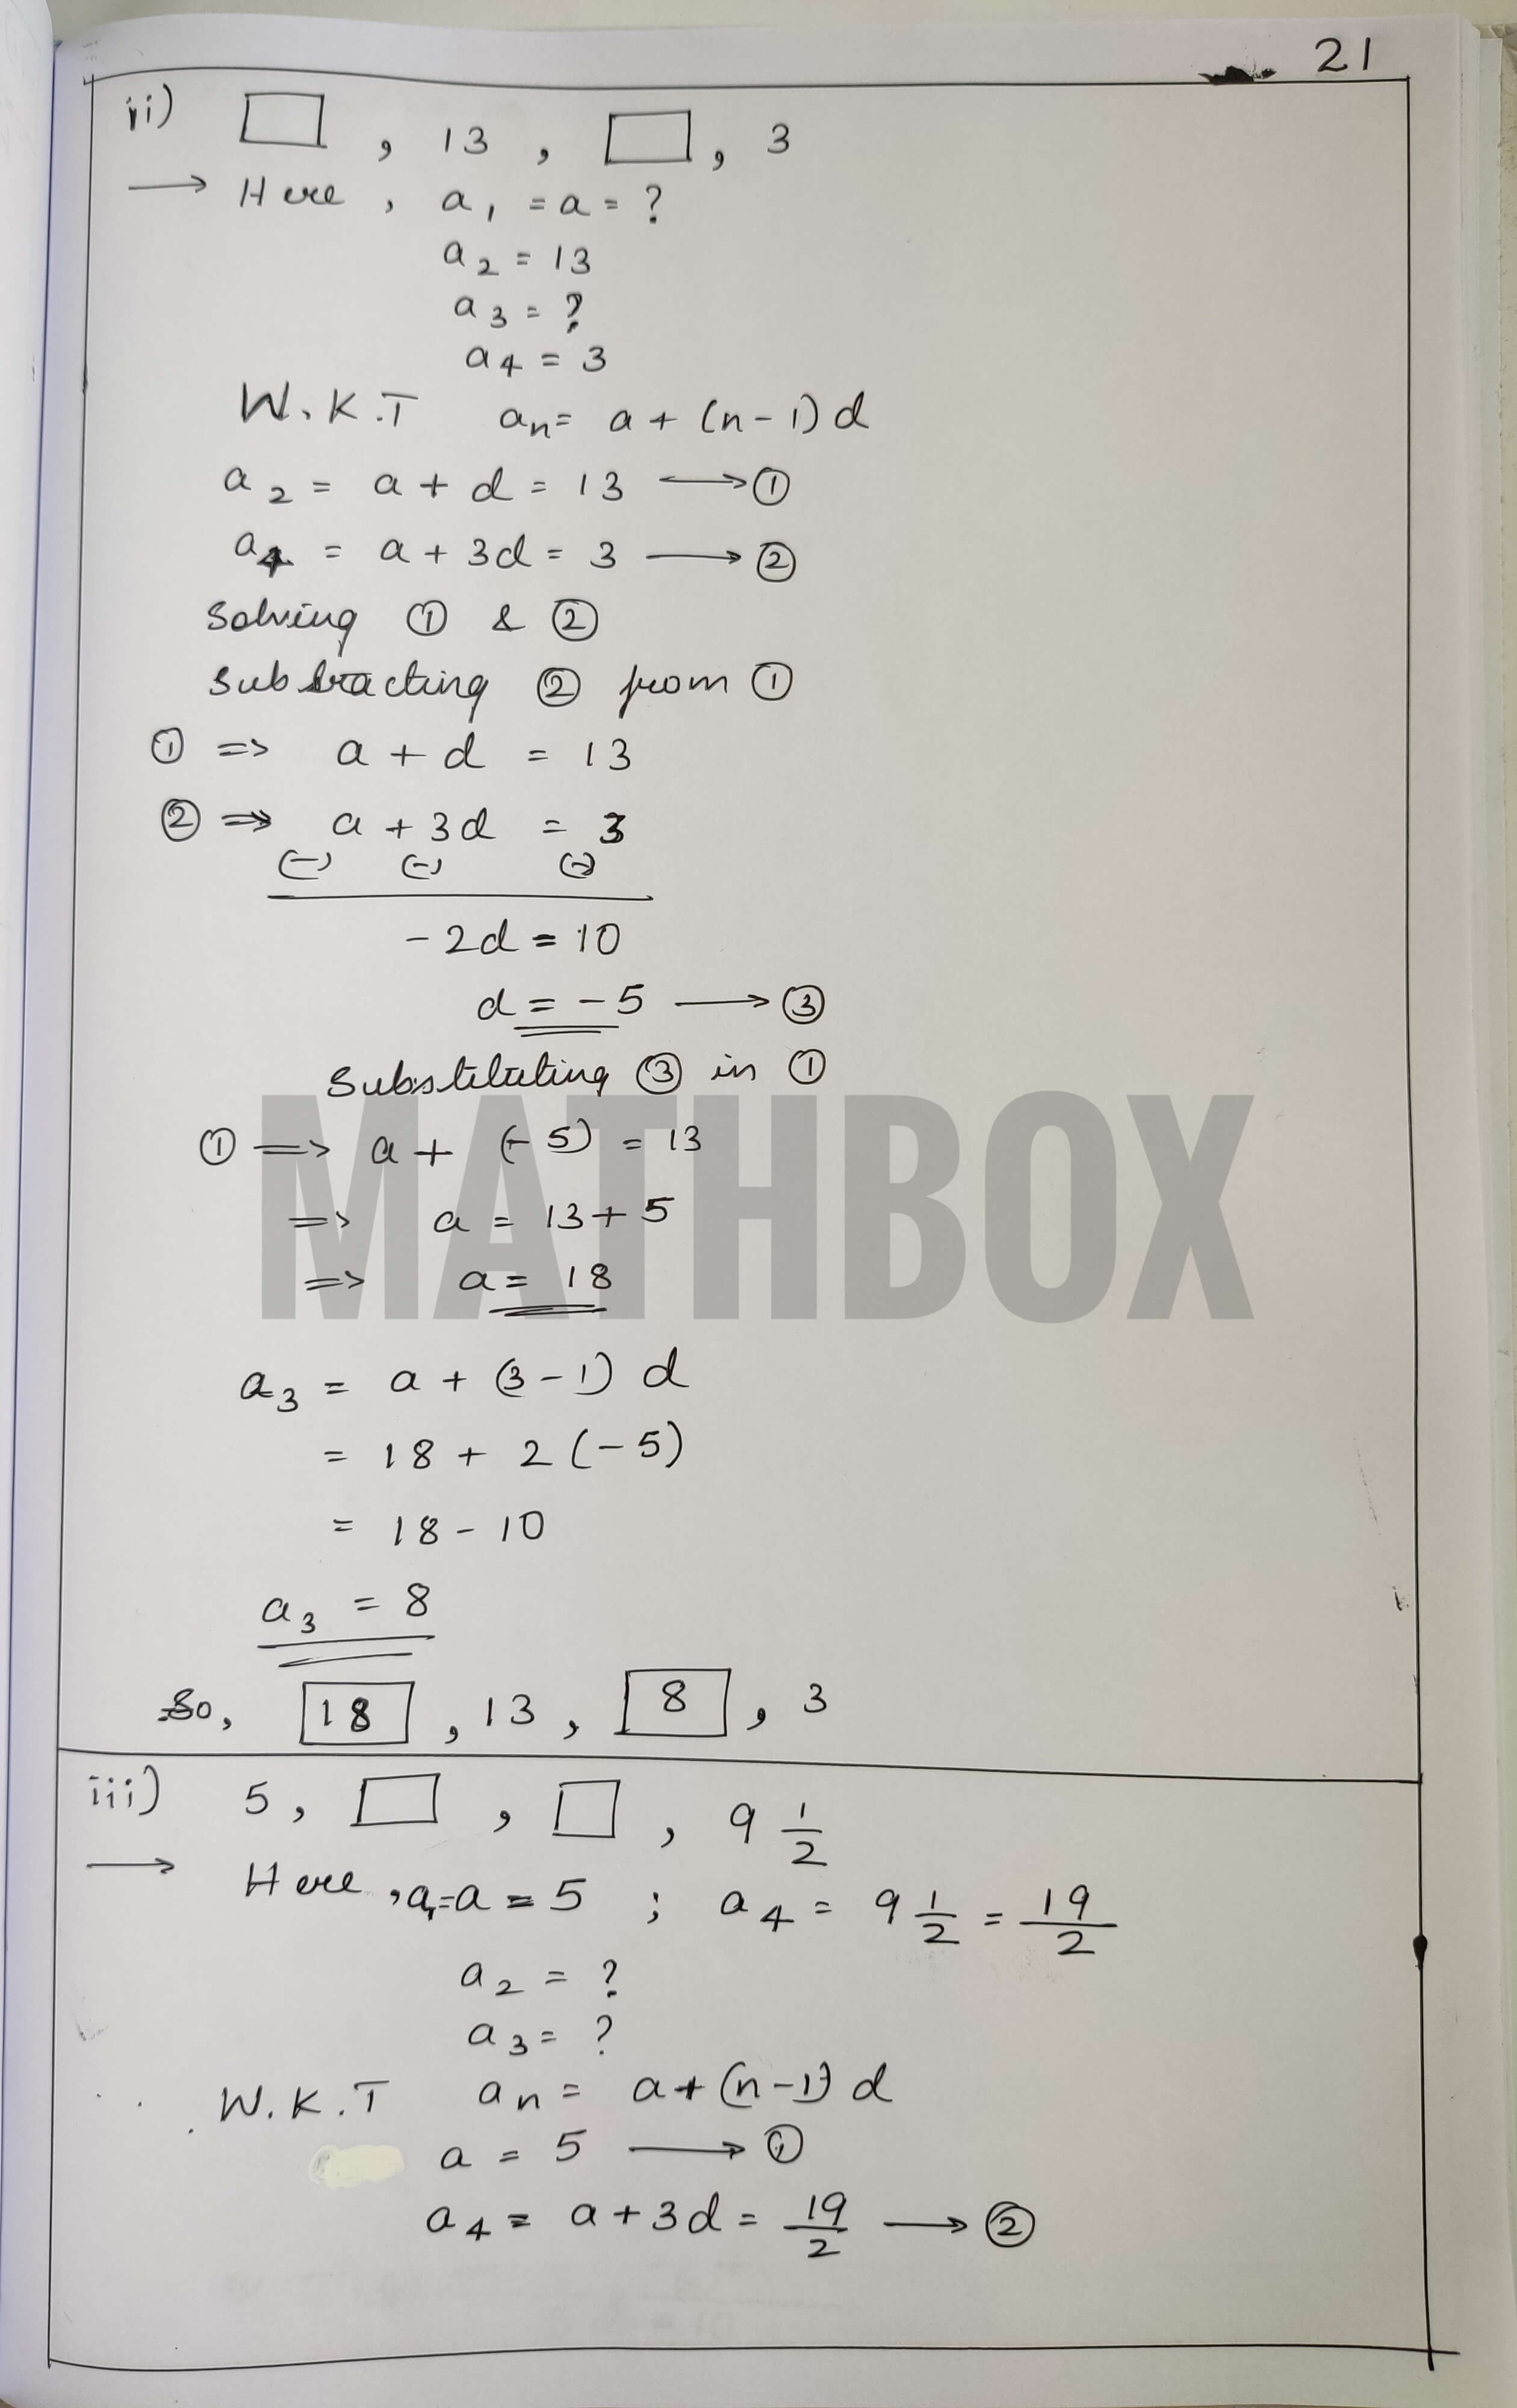 21
ii) □ , 13 , □ , 3
→ Here , a₁ = a = ?
a₂ = 13
a₃ = ?
a₄ = 3
W.K.T aₙ = a + (n-1) d
a₂ = a + d = 13 → ①
a₄ = a + 3d = 3 → ②
Solving ① & ②
Subtracting ② from ①
① => a + d = 13
② => a + 3d = 3
(-) (-) (-)
-2d = 10
d = -5 → ③
Substituting ③ in ①
① => a + (-5) = 13
=> a = 13 + 5
=> a = 18
MATHBOX
a₃ = a + (3-1) d
= 18 + 2 (-5)
= 18 - 10
a₃ = 8
So, 18 , 13 , 8 , 3
iii) 5 , □ , □ , 9 1/2
→ Here , a₁ = a = 5 ; a₄ = 9 1/2 = 19/2
a₂ = ?
a₃ = ?
W.K.T aₙ = a + (n-1) d
a = 5 → ①
a₄ = a + 3d = 19/2 → ②